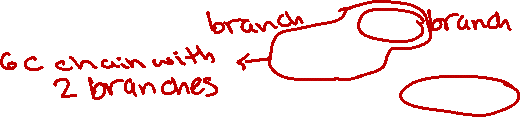 branch
branch
6C chain with
2 branches